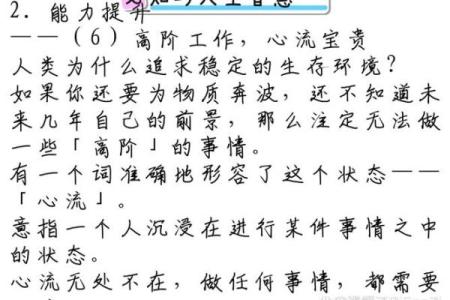 2. 能力提升
——（6）高阶工作，心流宝贵
人类为什么追求稳定的生存环境？
如果你还要为物质奔波，还不知道未
来几年自己的前景，那么注定无法做
一些「高阶」的事情。
有一个词准确地形容了这个状态——
「心流」。
意指一个人沉浸在进行某件事情之中
的状态。
心流无处不在，做任何事情，都需要